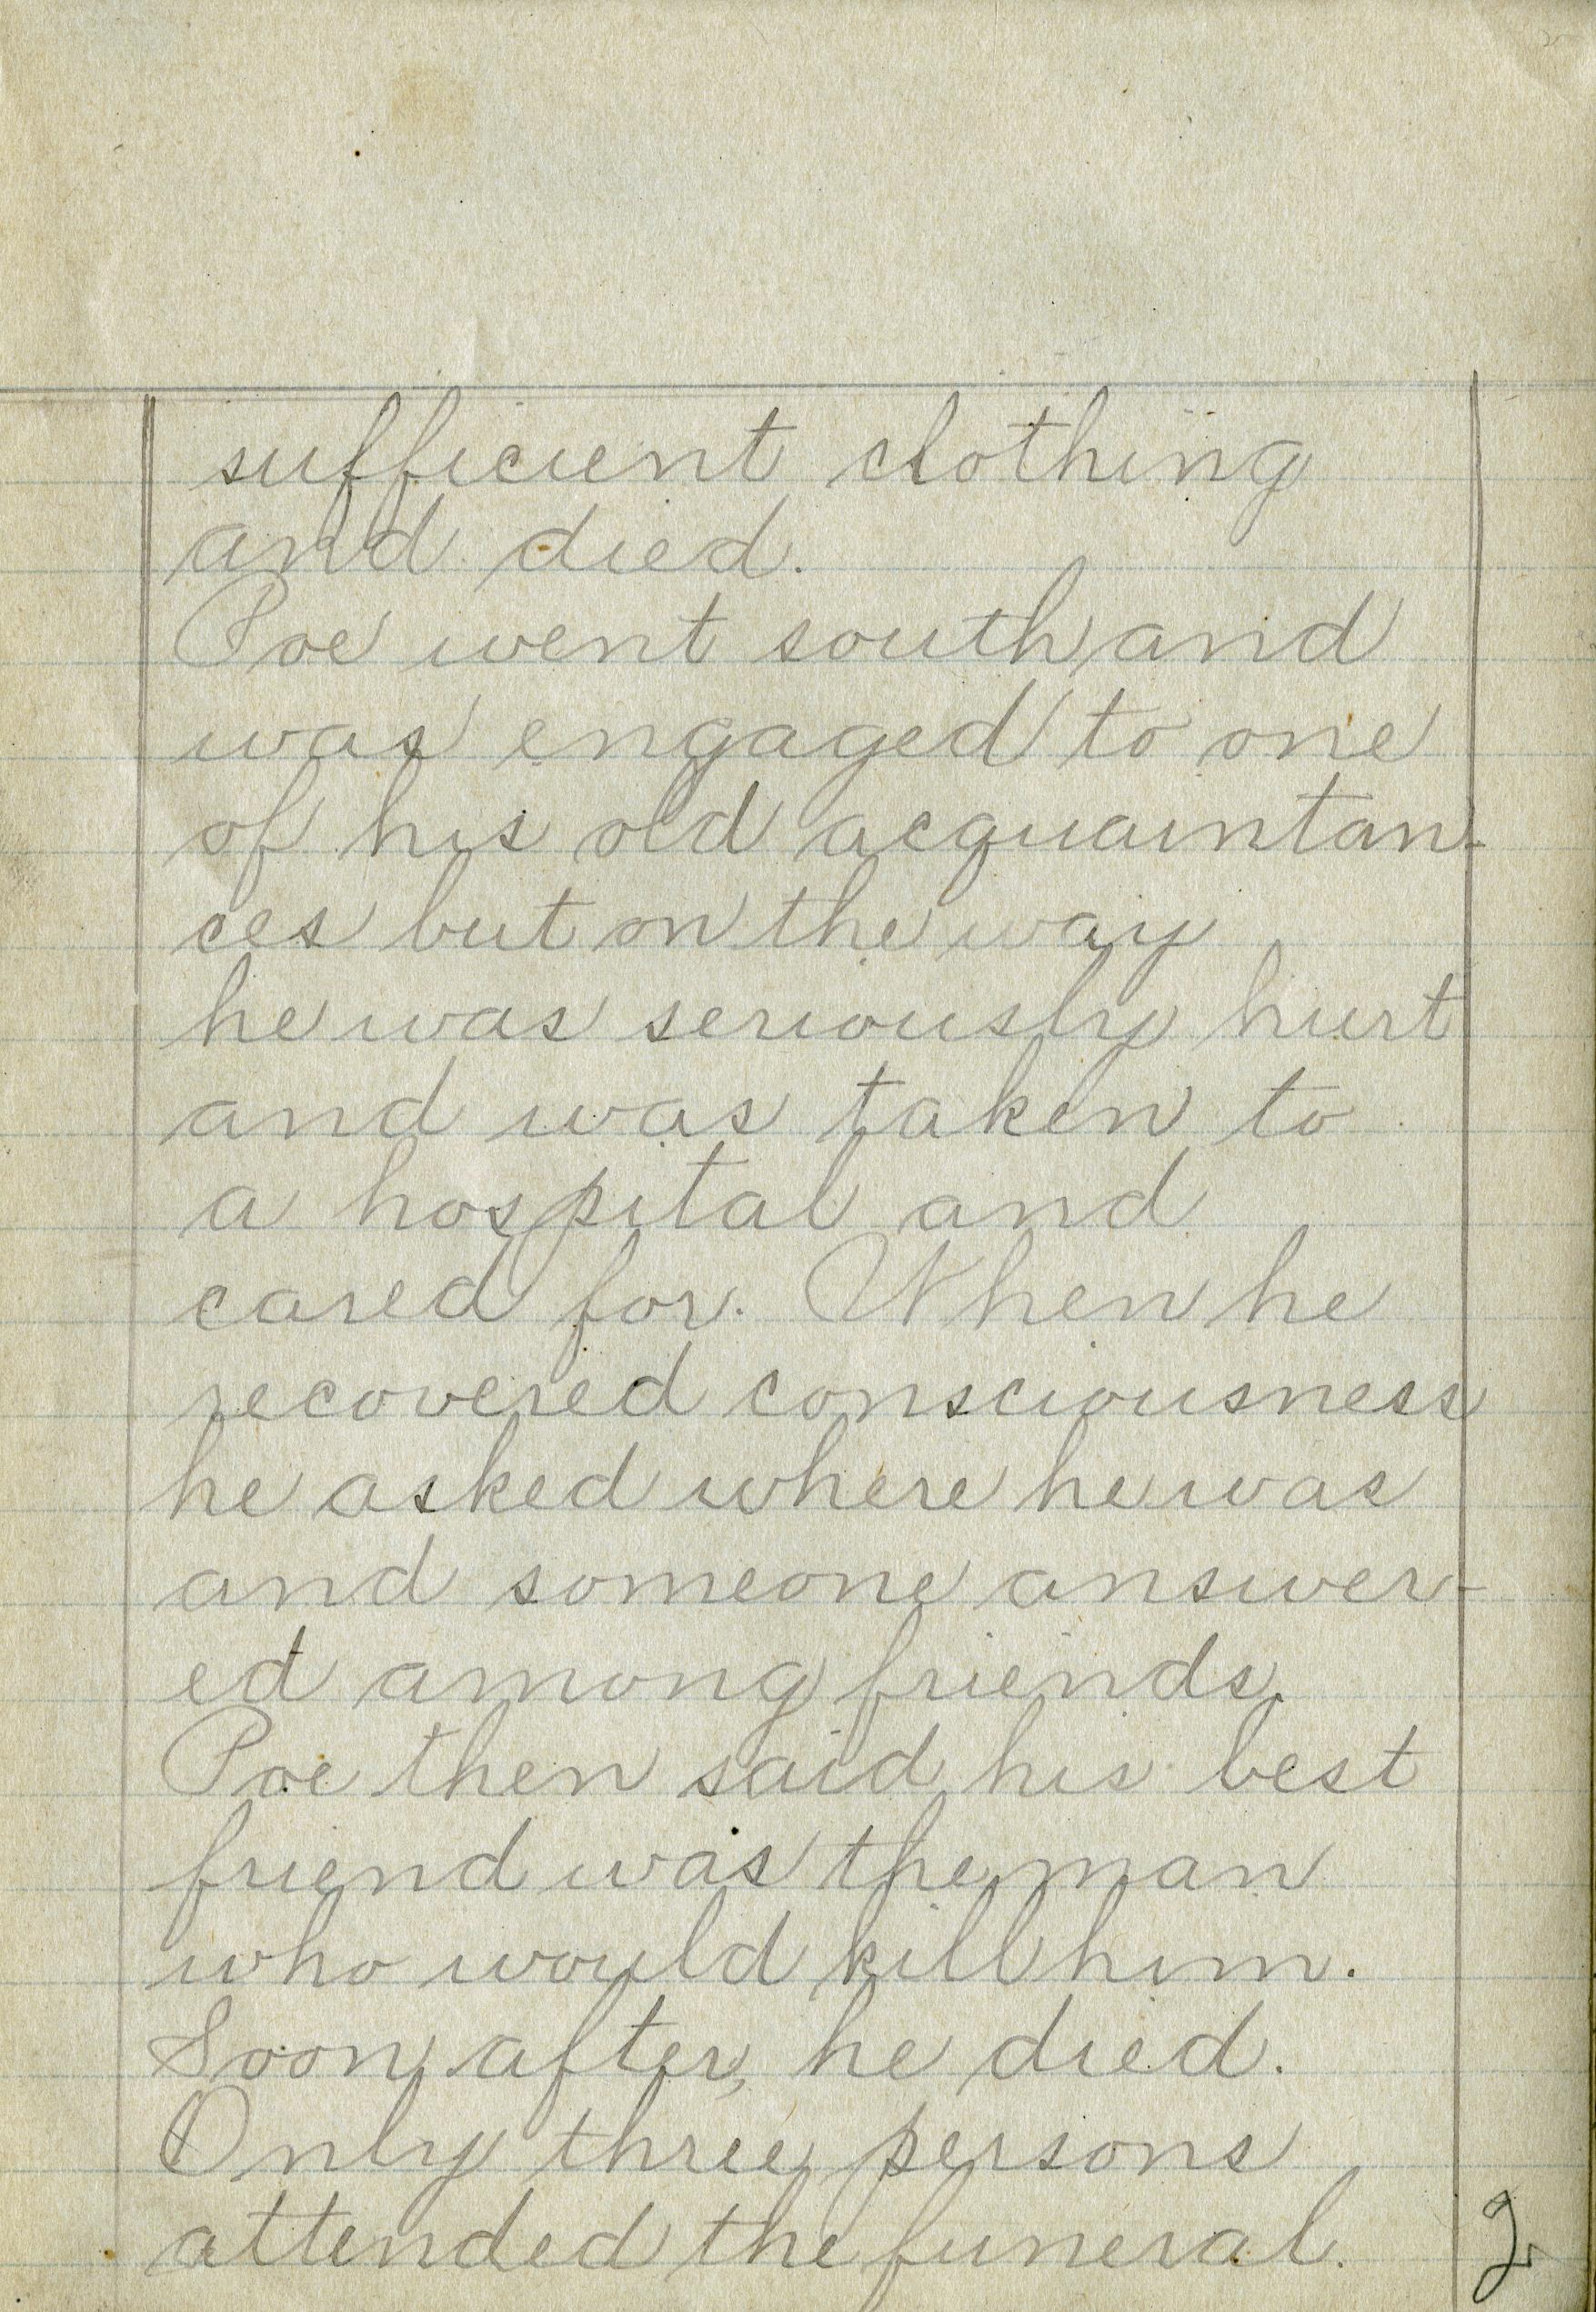 sufficient clothing
and died.
Poe went south and
was engaged to one
of his old acquaintan-
ces but on the way
he was seriously hurt
and was taken to
a hospital and
cared for. When he
recovered consciousness
he asked where he was
and someone answer-
ed among friends.
Poe then said his best
friend was the man
who would kill him.
Soon after, he died.
Only three persons
attended the funeral.
2